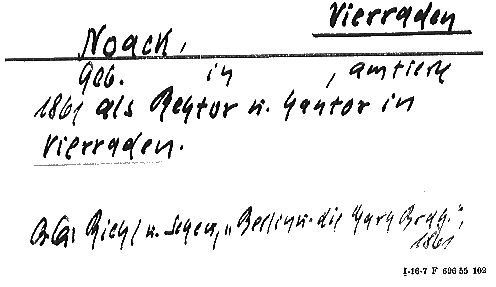 Vierraden
Noack,
Geb. in , amtierte
1861 als Rektor u. Kantor in
Vierraden.
Riehl u. Scheu, „Berlin u. die Mark Brdg.",
1861
I-16-7 F 606 55 102